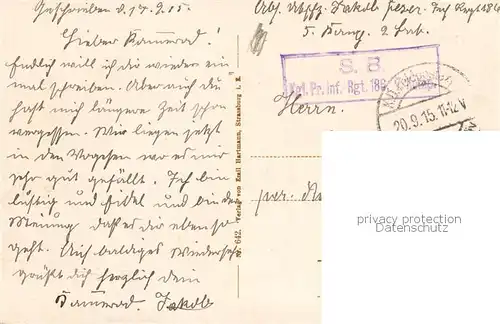 Geschrieben d. 17.9.15.
Lieber Kamerad!
Endlich will ich dir wieder ein
mal schreiben. Aber auch du
hast mich längere Zeit schon
vergessen. Wir liegen jetzt
in den Vogesen wo es mir
sehr gut gefällt. Ich bin
lustig und fidel und bin der
Meinung daß es dir ebenso
geht. Auf baldiges Wiedersehen
grüßt dich herzlich dein
Kamerad. Jakob
Nr. 642. Verlag von Emil Hartmann, Strassburg i. E.
Abs. Jakob Inf Regt 186
5. Komp. 2 Bat.
S. B.
Kgl. Pr. Inf. Rgt. 186
Herrn.
20.9.15. 11-12 V
privacy protection
Datenschutz